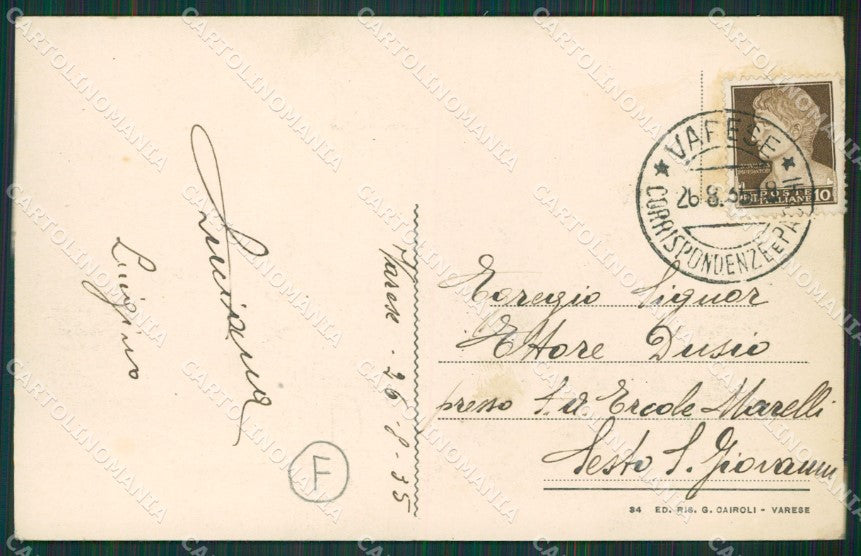 Luigino
Luciana
Varese - 26-8-35
F
VARESE
26.8.35
CORRISPONDENZE E PA
POSTE ITALIANE 10
Egregio Signor
Ettore Dusio
presso S.A. Ercole Marelli
Sesto S. Giovanni
34 ED. RIS. G. CAIROLI - VARESE
CARTOLINOMANIA